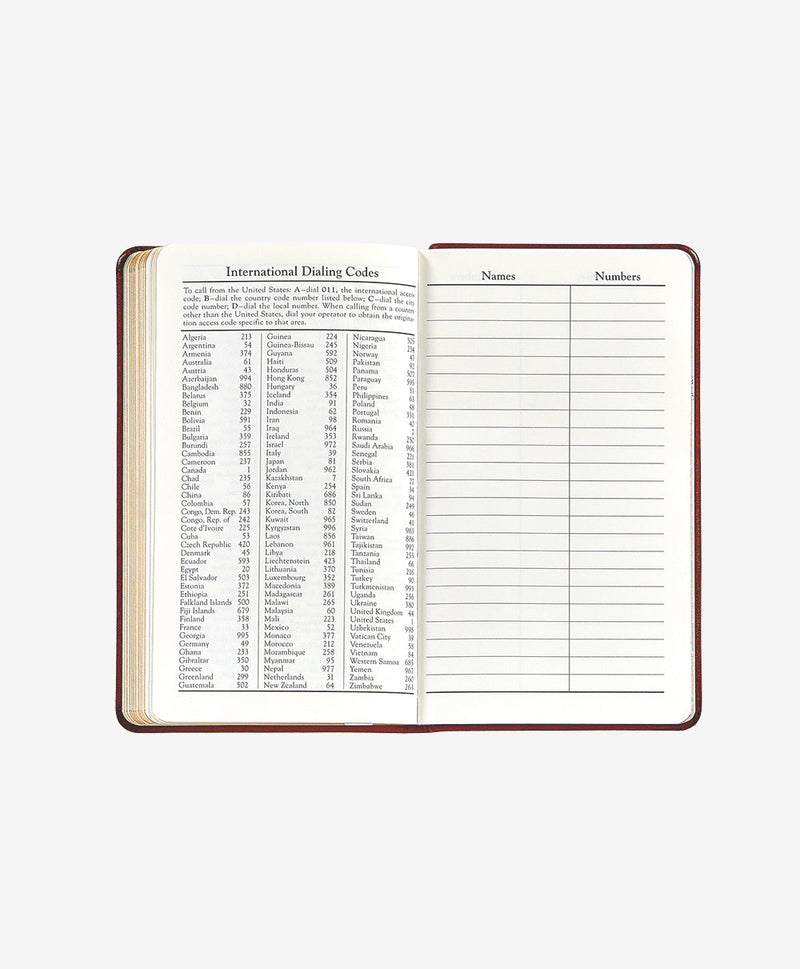 International Dialing Codes
To call from the United States: A–dial 011, the international access
code; B–dial the country code number listed below; C–dial the city
code number; D–dial the local number. When calling from a country
other than the United States, dial your operator to obtain the origina-
tion access code specific to that area.
Algeria 213
Argentina 54
Armenia 374
Australia 61
Austria 43
Azerbaijan 994
Bangladesh 880
Belarus 375
Belgium 32
Benin 229
Bolivia 591
Brazil 55
Bulgaria 359
Burundi 257
Cambodia 855
Cameroon 237
Canada 1
Chad 235
Chile 56
China 86
Colombia 57
Congo, Dem. Rep. 243
Congo, Rep. of 242
Cote d'Ivoire 225
Cuba 53
Czech Republic 420
Denmark 45
Ecuador 593
Egypt 20
El Salvador 503
Estonia 372
Ethiopia 251
Falkland Islands 500
Fiji Islands 679
Finland 358
France 33
Georgia 995
Germany 49
Ghana 233
Gibraltar 350
Greece 30
Greenland 299
Guatemala 502
Guinea 224
Guinea-Bissau 245
Guyana 592
Haiti 509
Honduras 504
Hong Kong 852
Hungary 36
Iceland 354
India 91
Indonesia 62
Iran 98
Iraq 964
Ireland 353
Israel 972
Italy 39
Japan 81
Jordan 962
Kazakhstan 7
Kenya 254
Kiribati 686
Korea, North 850
Korea, South 82
Kuwait 965
Kyrgyzstan 996
Laos 856
Lebanon 961
Libya 218
Liechtenstein 423
Lithuania 370
Luxembourg 352
Macedonia 389
Madagascar 261
Malawi 265
Malaysia 60
Mali 223
Mexico 52
Monaco 377
Morocco 212
Mozambique 258
Myanmar 95
Nepal 977
Netherlands 31
New Zealand 64
Nicaragua 505
Nigeria 234
Norway 47
Pakistan 92
Panama 507
Paraguay 595
Peru 51
Philippines 63
Poland 48
Portugal 351
Romania 40
Russia 7
Rwanda 250
Saudi Arabia 966
Senegal 221
Serbia 381
Slovakia 421
South Africa 27
Spain 34
Sri Lanka 94
Sudan 249
Sweden 46
Switzerland 41
Syria 963
Taiwan 886
Tajikistan 992
Tanzania 255
Thailand 66
Tunisia 216
Turkey 90
Turkmenistan 993
Uganda 256
Ukraine 380
United Kingdom 44
United States 1
Uzbekistan 998
Vatican City 39
Venezuela 58
Vietnam 84
Western Samoa 685
Yemen 967
Zambia 260
Zimbabwe 263
Names Numbers